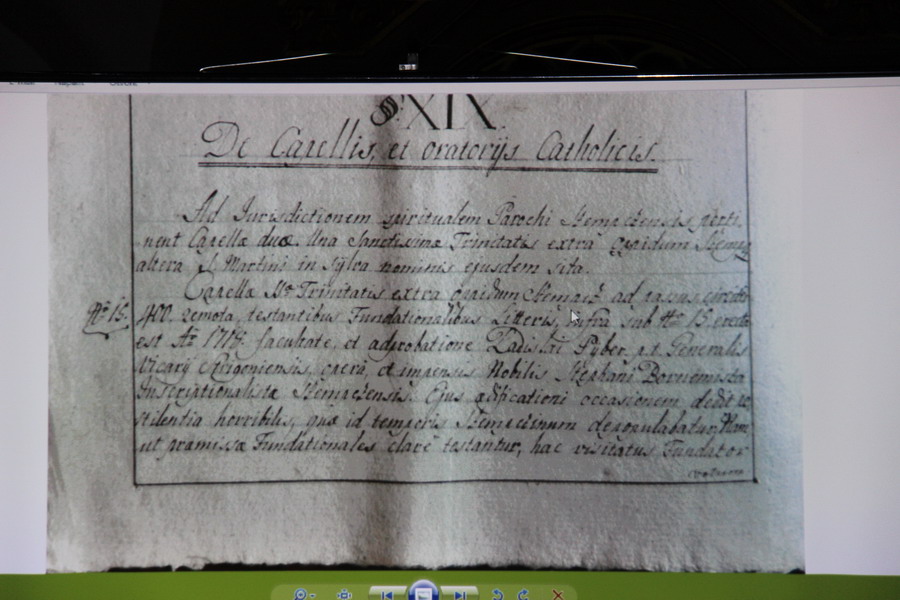 §. XIX.
De Capellis, et oratorijs Catholicis.
Ad Jurisdictionem spiritualem Parochi perti,
nent Capellæ duæ. Una Sanctissimæ Trinitatis extra oppidum
altera S. Martini in sylva nominis ejusdem sita.
Capella Trinitatis extra oppidum ad passus circiter
Nro 15. 400. remota, testantibus Fundationalibus Litteris, infra sub Nro 15. erecta
est Ao facultate, et adprobatione Ladislai Pyber p.t. Generalis
Vicarij opera, et impensis Nobilis Stephani Bornemista
Inscriptionalistæ Ejus ædificationi occasionem dedit
stilentia horribilis, quæ id temporis depopulabatur, Nam
ut præmissæ Fundationales clare testantur, hac visitatus Fundator